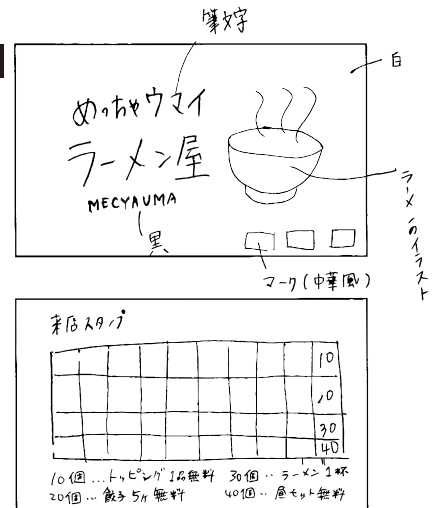 筆文字
白
めっちゃウマイ
ラーメン屋
MECYAUMA
黒
ラーメンのイラスト
マーク(中華風)
来店スタンプ
10
20
30
40
10個…トッピング1品無料
20個…餃子5ヶ無料
30個‥ラーメン1杯
40個‥昼セット無料